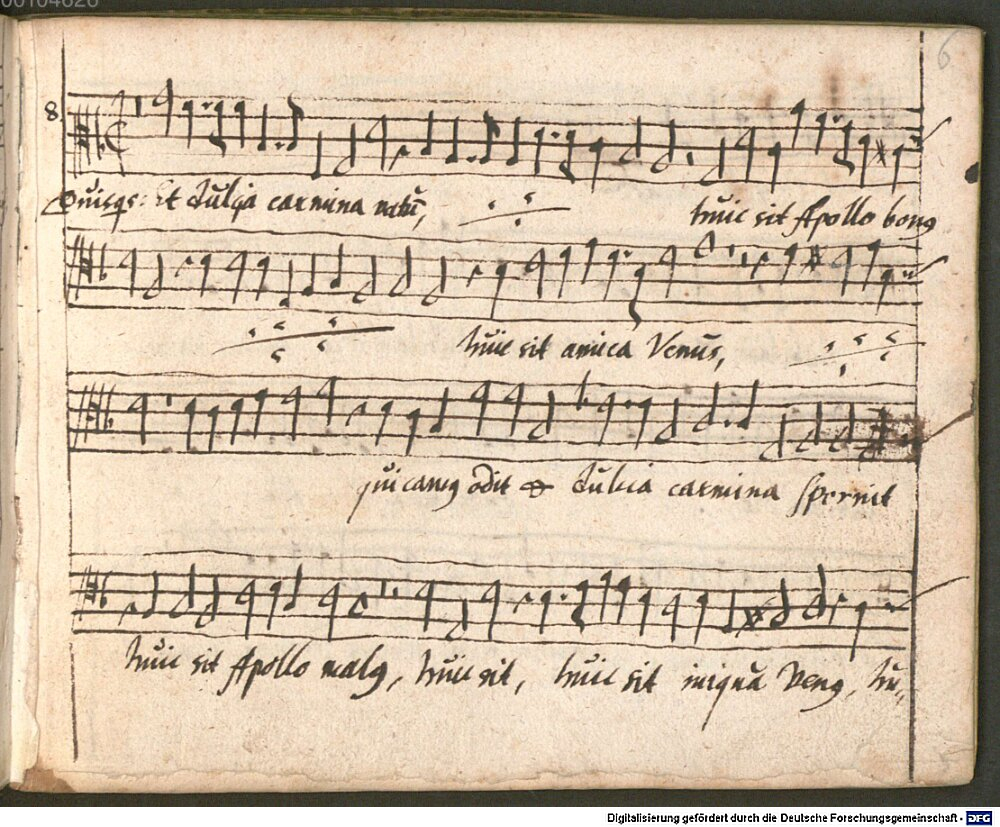 00104626
6
8
Quisqs: Et dulcia carmina
huic sit Apollo bong
huic sit amica Venus,
quicamg odit & dulcia carmina spernit
huic sit Apollo malg, huic sit, huic sit iniqua Veng, hu
Digitalisierung gefördert durch die Deutsche Forschungsgemeinschaft - DFG